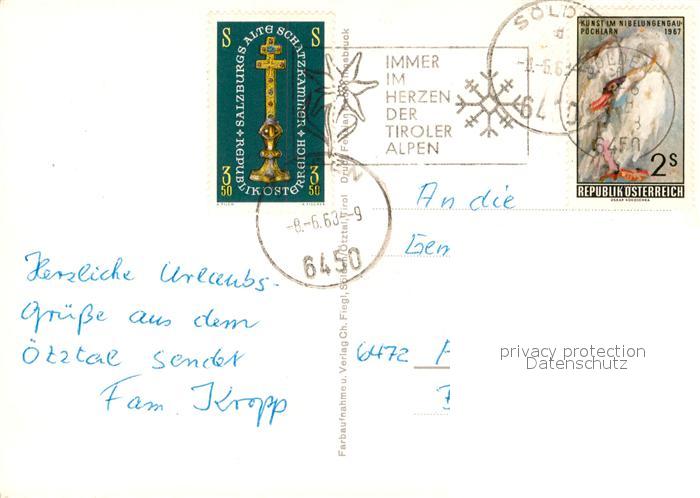 S ALTE SCHATZKAMMER S
SALZBURGS
REPUBLIK ÖSTERREICH
3 50
3 50
IMMER
IM
HERZEN
DER
TIROLER
ALPEN
SÖLDEN
-8.-6.68
6450
KUNST IM NIBELUNGENGAU
PÖCHLARN 1967
2 S
REPUBLIK ÖSTERREICH
OSKAR KOKOSCHKA
-8.-6.68-9
6450
An die
Gem
Herzliche Urlaubs-
Grüße aus dem
Ötztal sendet
Fam. Kropp
6472
privacy protection
Datenschutz
Farbaufnahme u. Verlag Ch. Fiegl, Sölden/Ötztal/Tirol